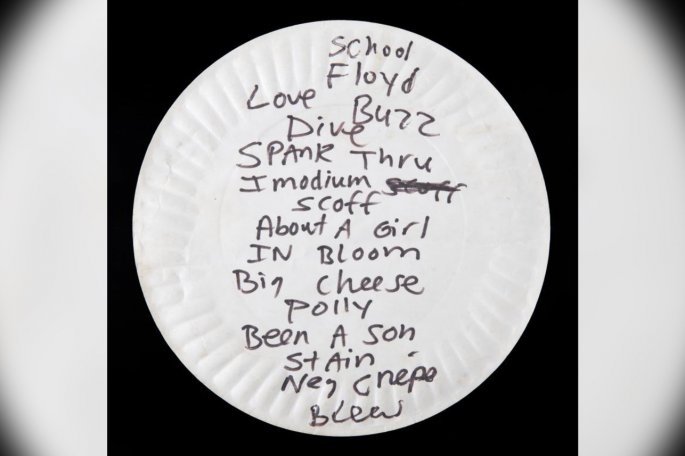 School
Floyd
Love Buzz
Dive
SPANK Thru
Imodium
Scoff
About A Girl
IN Bloom
Big Cheese
Polly
Been A Son
StAin
Neg Creep
Blew